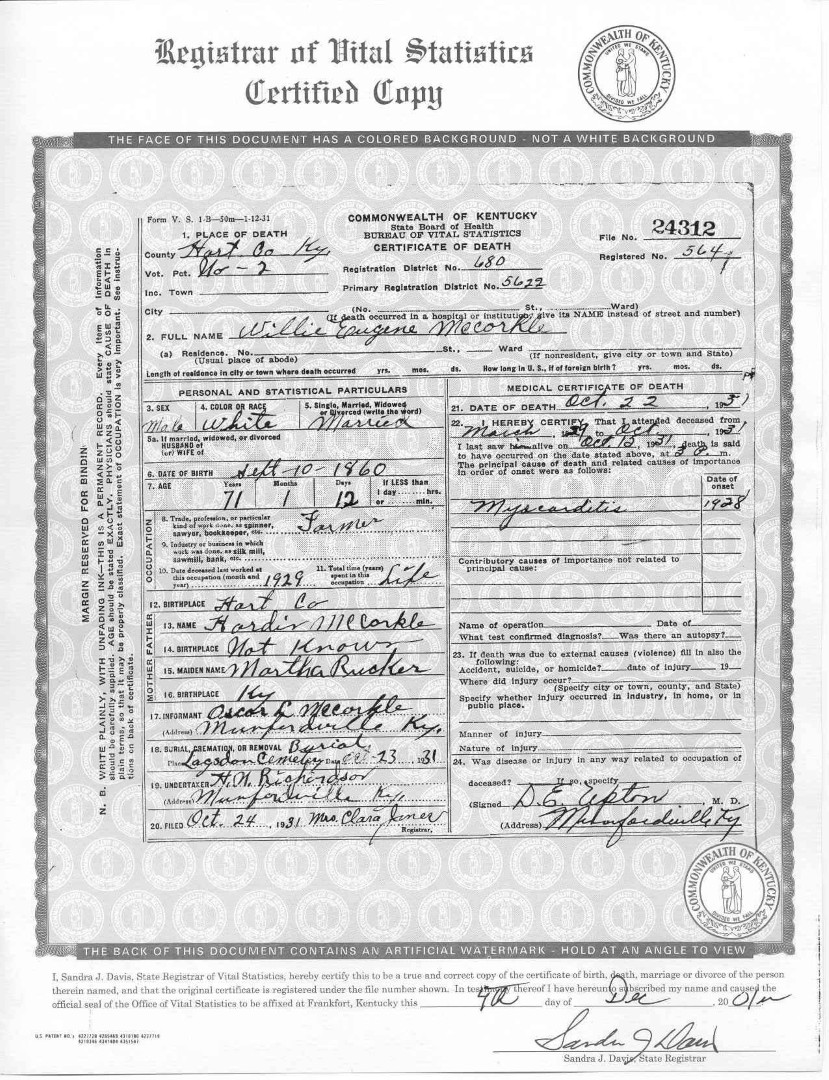 Registrar of Vital Statistics
Certified Copy
COMMONWEALTH OF KENTUCKY
UNITED WE STAND
DIVIDED WE FALL
THE FACE OF THIS DOCUMENT HAS A COLORED BACKGROUND - NOT A WHITE BACKGROUND
MARGIN RESERVED FOR BINDIN
N. B. WRITE PLAINLY, WITH UNFADING INK—THIS IS A PERMANENT RECORD. Every item of information
should be carefully supplied. AGE should be stated EXACTLY. PHYSICIANS should state CAUSE OF DEATH in
plain terms, so that it may be properly classified. Exact statement of OCCUPATION is very important. See instruc-
tions on back of certificate.
Form V. S. 1-B—50m—1-12-31
COMMONWEALTH OF KENTUCKY
State Board of Health
BUREAU OF VITAL STATISTICS
CERTIFICATE OF DEATH
File No. 24312
Registered No. 564
1. PLACE OF DEATH
County Hart Co Ky.
Vot. Pct. No - 2
Registration District No. 680
Inc. Town
Primary Registration District No. 5622
City (No. St., Ward)
(If death occurred in a hospital or institution, give its NAME instead of street and number)
2. FULL NAME Willie Eugene McCorkle
(a) Residence. No. St., Ward
(Usual place of abode) (If nonresident, give city or town and State)
Length of residence in city or town where death occurred yrs. mos. ds. How long in U. S., if of foreign birth? yrs. mos. ds.
PERSONAL AND STATISTICAL PARTICULARS
3. SEX 4. COLOR OR RACE 5. Single, Married, Widowed
or Divorced (write the word)
Male White Married
5a. If married, widowed, or divorced
HUSBAND of
(or) WIFE of
6. DATE OF BIRTH Sept-10-1860
7. AGE Years Months Days If LESS than
1 day hrs.
or min.
71 1 12
OCCUPATION
8. Trade, profession, or particular
kind of work done, as spinner,
sawyer, bookkeeper, etc. Farmer
9. Industry or business in which
work was done, as silk mill,
sawmill, bank, etc.
10. Date deceased last worked at
this occupation (month and
year) 1929
11. Total time (years)
spent in this
occupation Life
12. BIRTHPLACE Hart Co
FATHER
13. NAME Hardin McCorkle
14. BIRTHPLACE Not Known
MOTHER
15. MAIDEN NAME Martha Rucker
16. BIRTHPLACE Ky
17. INFORMANT Oscar L McCorkle
(Address) Munfordville Ky.
18. BURIAL, CREMATION, OR REMOVAL Burial
Place Lagsdon Cemetery Date Oct-23 1931
19. UNDERTAKER H.N. Richardson
(Address) Munfordville Ky,
20. FILED Oct. 24, 1931 Mrs. Clara Janes
Registrar.
MEDICAL CERTIFICATE OF DEATH
21. DATE OF DEATH Oct. 22, 1931
22. I HEREBY CERTIFY, That I attended deceased from
March, 1929 to Oct, 1931
I last saw him alive on Oct 15, 1931, death is said
to have occurred on the date stated above, at m.
The principal cause of death and related causes of importance
in order of onset were as follows:
Date of
onset
Myocarditis 1928
Contributory causes of importance not related to
principal cause:
Name of operation Date of
What test confirmed diagnosis? Was there an autopsy?
23. If death was due to external causes (violence) fill in also the
following:
Accident, suicide, or homicide? date of injury 19
Where did injury occur?
(Specify city or town, county, and State)
Specify whether injury occurred in industry, in home, or in
public place.
Manner of injury
Nature of injury
24. Was disease or injury in any way related to occupation of
deceased? If so, specify
(Signed D.E. Upton, M. D.
(Address) Munfordville Ky
COMMONWEALTH OF KENTUCKY
UNITED WE STAND
DIVIDED WE FALL
THE BACK OF THIS DOCUMENT CONTAINS AN ARTIFICIAL WATERMARK - HOLD AT AN ANGLE TO VIEW
I, Sandra J. Davis, State Registrar of Vital Statistics, hereby certify this to be a true and correct copy of the certificate of birth, death, marriage or divorce of the person
therein named, and that the original certificate is registered under the file number shown. In testimony thereof I have hereunto subscribed my name and caused the
official seal of the Office of Vital Statistics to be affixed at Frankfort, Kentucky this 4th day of Dec, 20 01
Sandra J Davis
Sandra J. Davis, State Registrar
U.S. PATENT NO.: